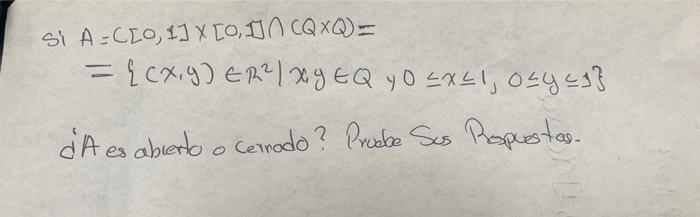 Si A = ([0,1] X [0,1] ∩ (QXQ) =
= { (x,y) ∈ R² | x,y ∈ Q y 0 ≤ x ≤ 1, 0 ≤ y ≤ 1}
¿A es abierto o cerrado? Pruebe Sus Respuestas.